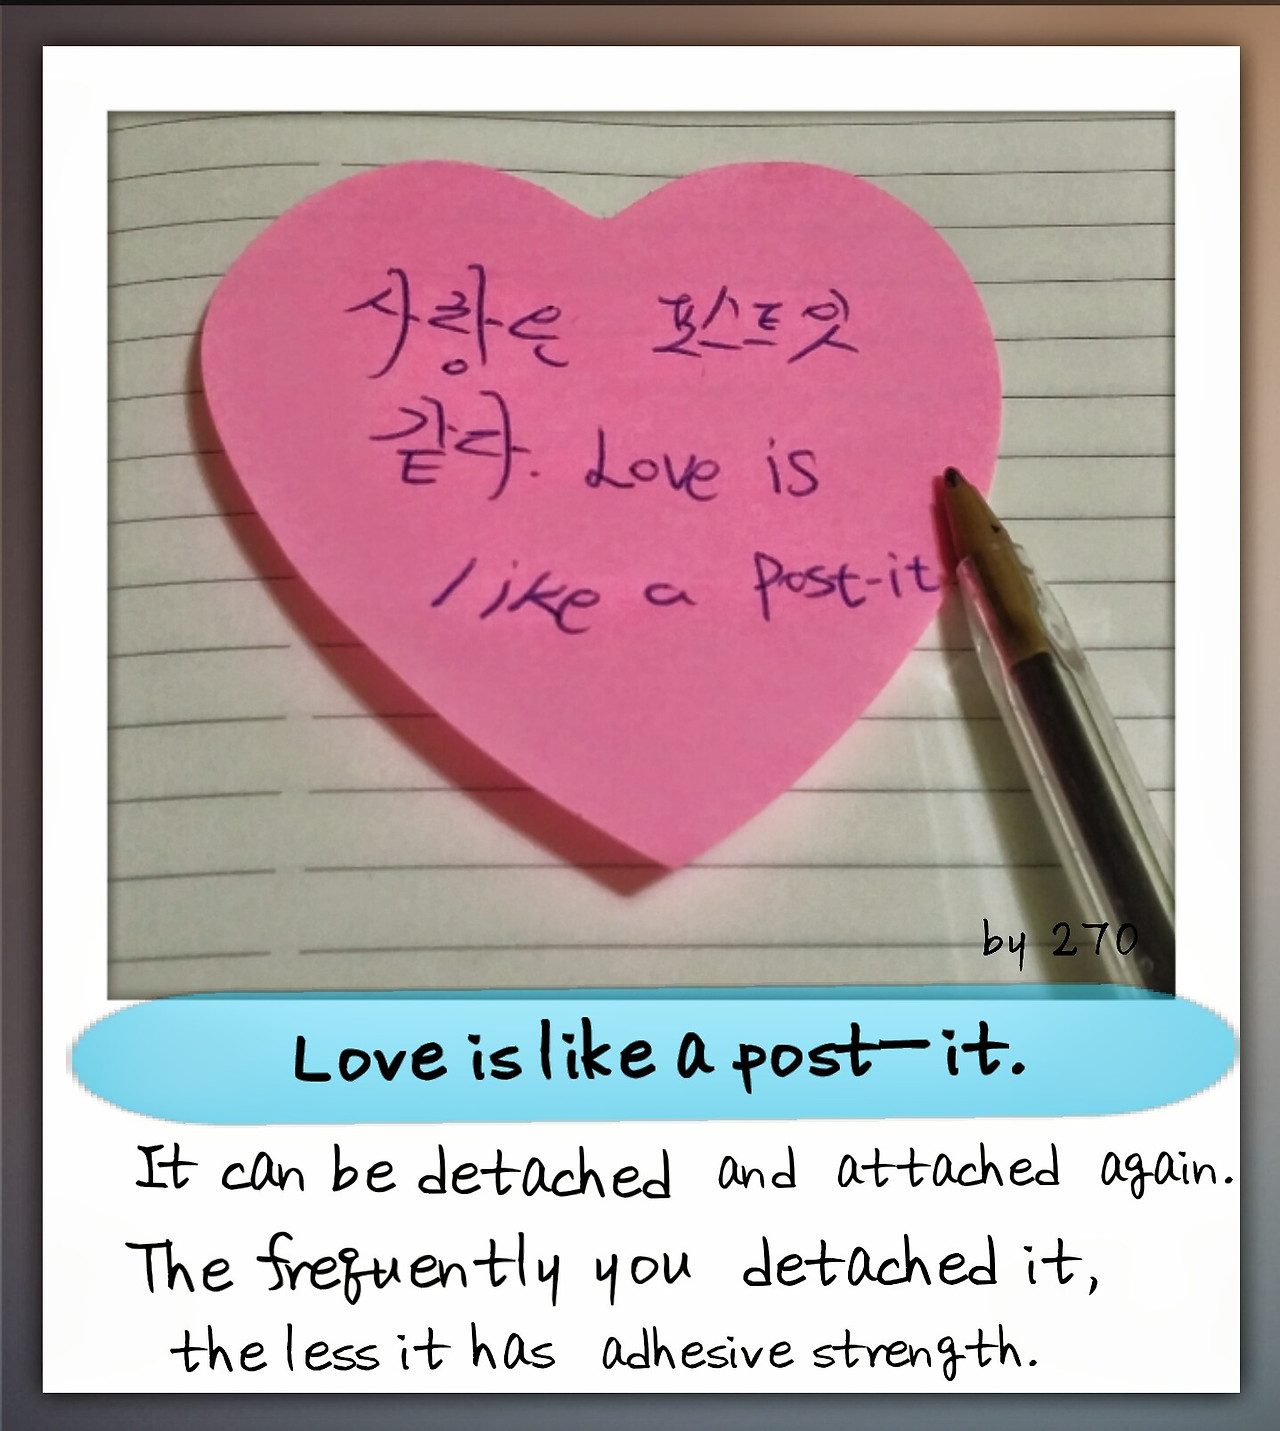 사랑은 포스트잇
같다. Love is
like a Post-it
by 270
Love is like a post-it.
It can be detached and attached again.
The frequently you detached it,
the less it has adhesive strength.